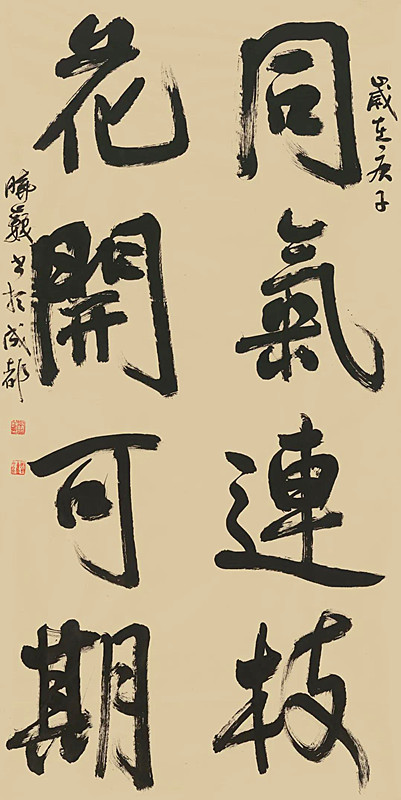 歲在庚子
同氣連枝
花開可期
曉巍书於成都